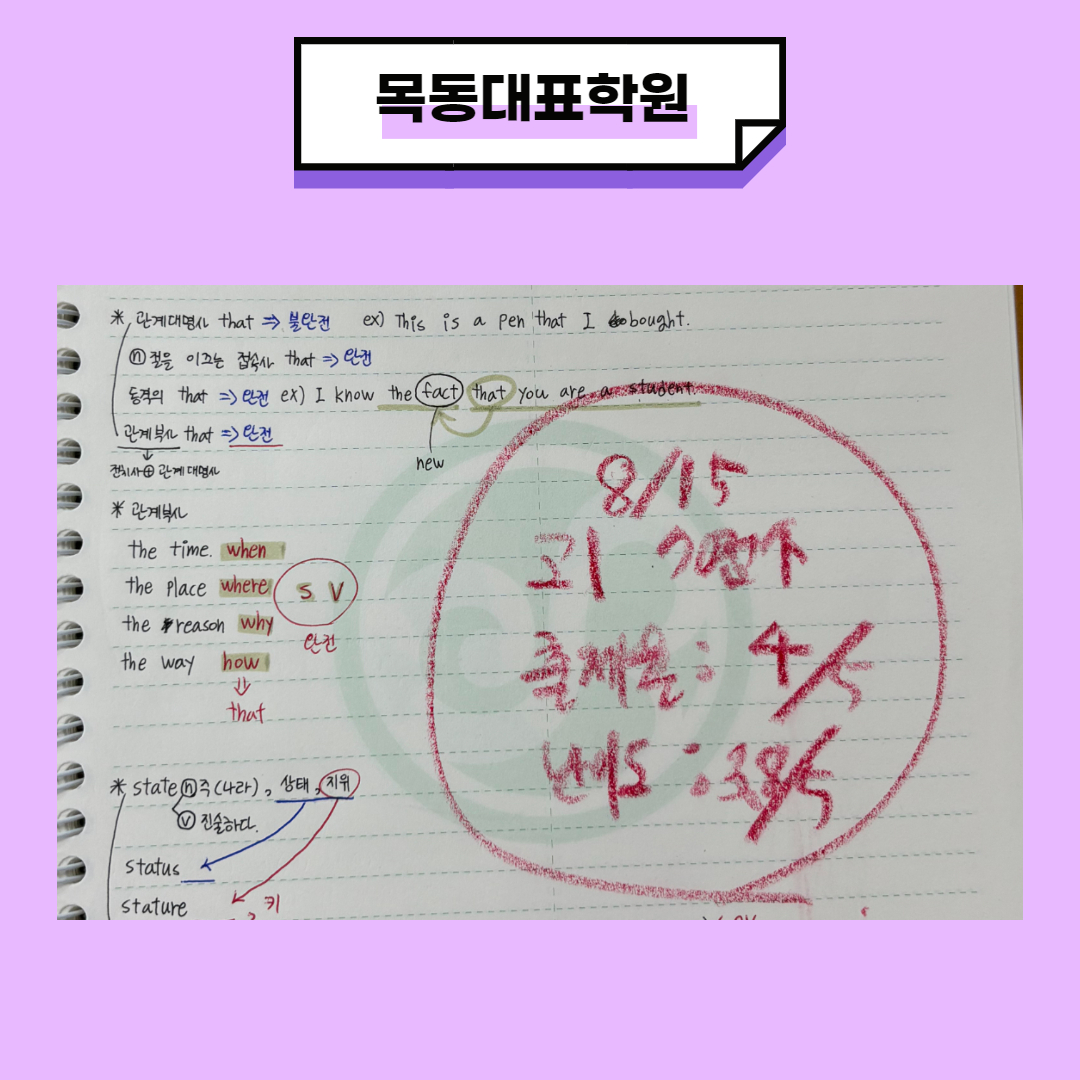 목동대표학원
* 관계대명사 that => 불완전 ex) This is a pen that I bought.
ⓝ절을 이끄는 접속사 that => 완전
동격의 that => 완전 ex) I know the fact that you are a student
관계부사 that => 완전
new
전치사 ⊕ 관계대명사
* 관계부사
the time when
the place where
S V
the reason why
완전
the way how
⇓
that
* state ⓝ 주(나라), 상태, 지위
ⓥ 진술하다.
status
stature
키
8/15
고1
출제율 : 4/5
:3.8/5